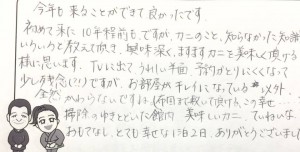 今年も来ることができて良かったです。
初めて来た10年程前もですが、カニのこと、知らなかった知識
いろいろと教えて頂き、興味深く、ますますカニを美味しく頂ける
様に思います。TVに出て、うれしい半面、予約がとりにくくなって
少し残念(!!)ですが、お部屋がキレイになっている、メリット。
全然かわらないですね（布団まで敷いて頂けて、この幸せ…
掃除のゆきとどいた館内 美味しいカニ、ていねいな
おもてなし、とても幸せな1泊2日、ありがとうございました